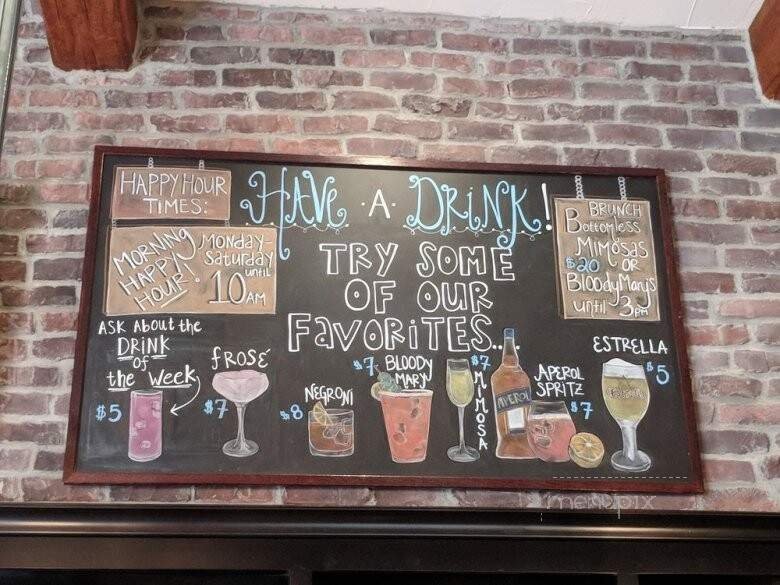 HAPPY HOUR
TIMES:
MORNING
HAPPY
HOUR!
MONDAY-
SATURDAY
until
10 AM
HAVE A DRINK!
TRY SOME
OF OUR
FAVORITES...
BRUNCH
Bottomless
Mimosas
$20 OR
Bloody Mary's
until 3pm
ASK About the
DRiNK
of
the Week
$5
fROSÉ
$7
NEGRONI
$8
$7 BLOODY
MARY
$7
MIMOSA
APEROL
APEROL
SPRITZ
$7
ESTRELLA
$5
menupix